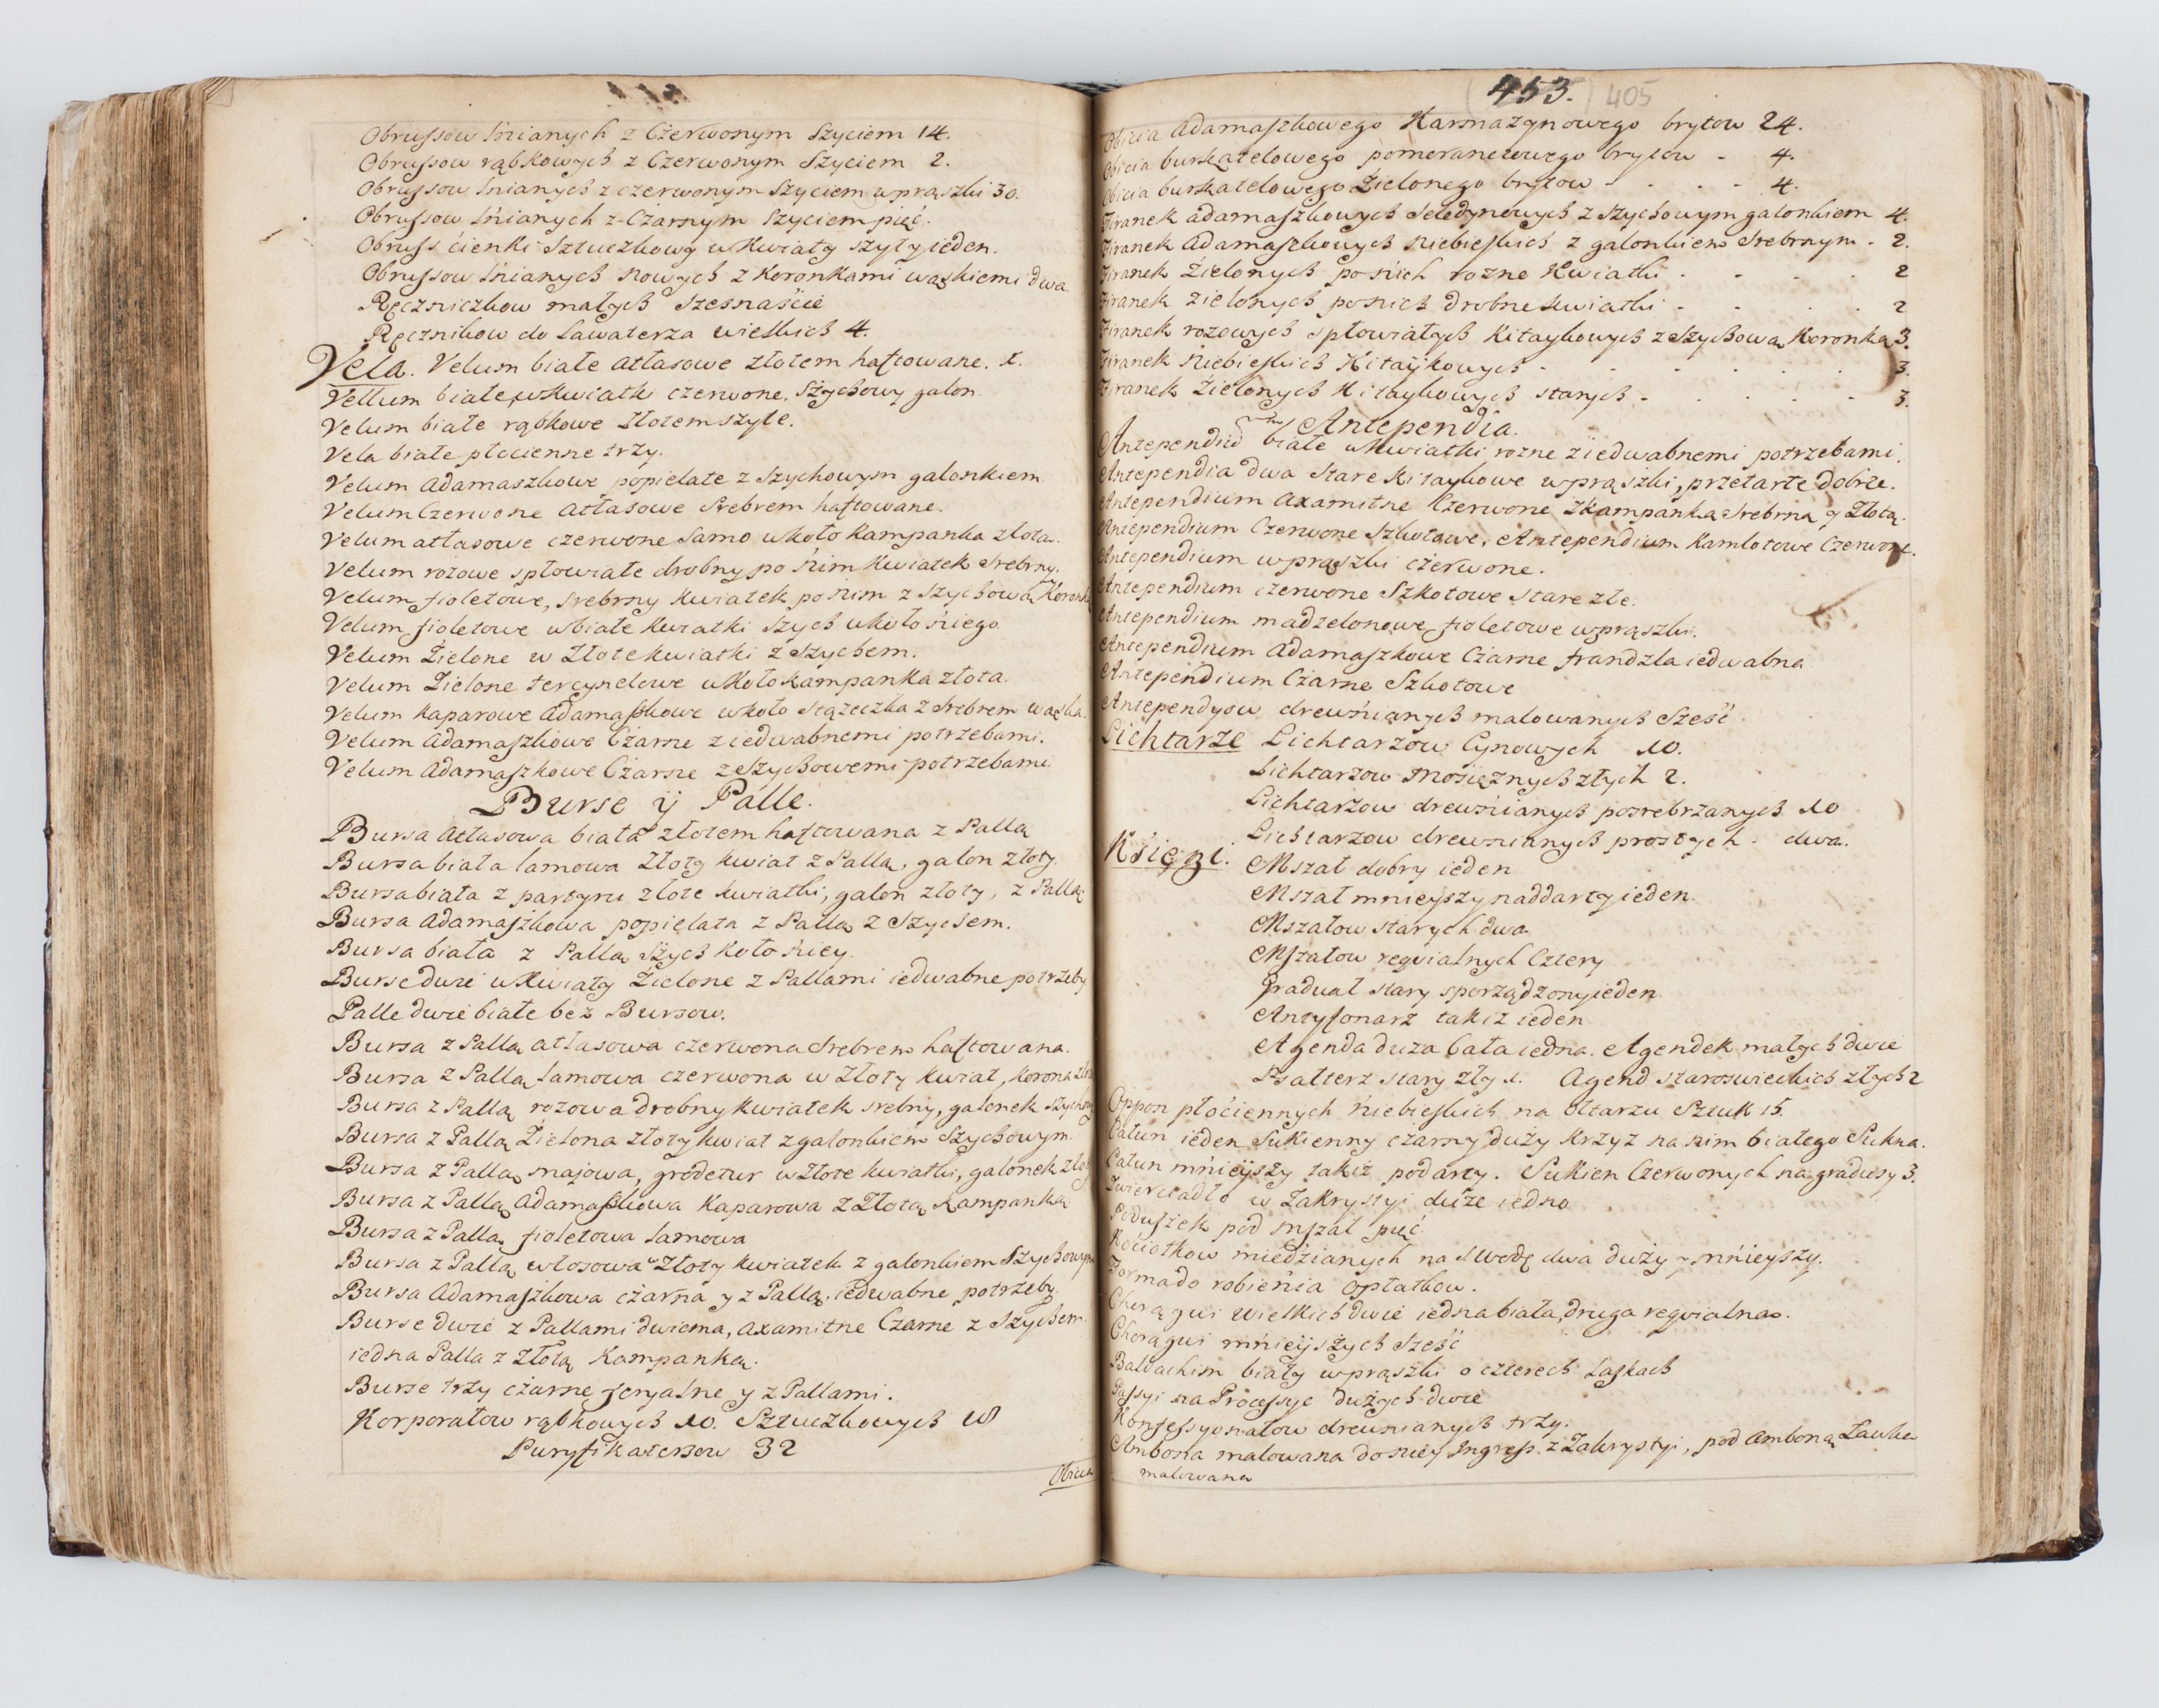 Obrussow lnianych z Czerwonym Szyciem 14.
Obrussow rąbkowych z Czerwonym Szyciem 2.
Obrussow lnianych z czerwonym Szyciem w prąszki 30.
Obrussow lnianych z Czarnym Szyciem pięć.
Obruss cienki Sztuczkowy w kwiaty szyty ieden.
Obrussow lnianych Nowych z Koronkami wąskiemi dwa
Ręczniczkow małych Szesnaście
Ręcznikow do Lawaterza wielkich 4.
Vela. Velum białe Atłasowe złotem haftowane. 1.
Vellum białe w kwiatki czerwone, Szychowy galon
Velum białe rąbkowe Złotem szyte.
Vela białe płocienne trzy.
Velum Adamaszkowe popielate z Szychowym galonkiem
Velum Czerwone Atłasowe Srebrem haftowane.
Velum atłasowe czerwone Samo wkoło Kampanka złota.
Velum rozowe spłowiałe drobny po nim kwiatek Srebrny.
Velum fioletowe, srebrny kwiatek po nim z szychową Koronk
Velum fioletowe w białe kwiatki Szych wkoło niego
Velum Zielone w Złote kwiatki z szychem.
Velum Zielone tercynelowe wkoło kampanka złota.
Velum Kaparowe Adamaszkowe wkoło Stążeczka z Srebrem wąska.
Velum Adamaszkowe Czarne z iedwabnemi potrzebami.
Velum Adamaszkowe Czarne z Szychowemi potrzebami
Burse ÿ Palle.
Bursa Atłasowa biała złotem haftowana z Pallą
Bursa biała lamowa Złoty kwiat z Pallą, galon złoty
Bursa biała z partyru złote kwiatki, galon złoty, z Pallą
Bursa Adamaszkowa popielata z Pallą z Szychem.
Bursa biała z Pallą Szych koło niey
Burse dwie w Kwiaty Zielone z Pallami iedwabne potrzeby
Palle dwie białe bez Bursow.
Bursa z Pallą atłasowa czerwona Srebrem haftowana.
Bursa z Pallą lamowa czerwona w Złoty kwiat, korona zło
Bursa z Pallą rozowa drobny kwiatek srebny, galonek szychowy
Bursa z Pallą Zielona złoty kwiat z galonkiem Szychowym.
Bursa z Pallą majowa, grodetur w Złote kwiatki, galonek zło
Bursa z Pallą Adamaszkowa Kaparowa z Złotą Kampanką
Bursa z Pallą fioletowa lamowa
Bursa z Pallą włosowa w Złoty kwiatek z galonkiem Szychowym
Bursa Adamaszkowa czarna y z Pallą. iedwabne potrzeby
Burse dwie z Pallami dwiema, axamitne Czarne z Szychem
iedna Palla z Złotą Kampanką.
Burse trzy czarne feryalne y z Pallami.
Korporałow rąbkowych 10. Sztuczkowych 18
Puryfikaterzow 32
Obicia
453. 405
Obicia Adamaszkowego Karmazynowego brytow 24.
Obicia burkatelowego pomerancowego brytow - 4.
Obicia burkatelowego Zielonego brytow - - - - 4.
Firanek adamaszkowych Seledynowych z szychowym galonkiem 4.
Firanek Adamaszkowych niebieskich z galonkiem Srebrnym - 2.
Firanek Zielonych po nich rozne Kwiatki - - - 2
Firanek zielonych po nich drobne kwiatki - - - 2
Firanek rozowych spłowiałych Kitaykowych z Szychową Koronką 3.
Firanek Niebieskich Kitaykowych - - - - 3.
Firanek Zielonych Kitaykowych starych - - - - 3.
Antependia.
Antependiu białe w Kwiatki rozne z iedwabnemi potrzebami.
Antependia dwa Stare Kitaykowe w prąszki, przetarte dobrze.
Antependium axamitne Czerwone Z Kampanką Srebrną y Złotą.
Antependium Czerwone Szkotowe. Antependium Kamlotowe Czerwone.
Antependium w prąszki czerwone.
Antependium czerwone Szkotowe stare złe.
Antependium madzelonowe fioletowe w prąszki.
Antependium Adamaszkowe Czarne frandzla iedwabna
Antependium Czarne Szkotowe
Antependyow drewnianych malowanych Sześć
Lichtarze Lichtarzow Cynowych 10.
Lichtarzow Mosiężnych złych 2.
Lichtarzow drewnianych posrebrzanych 10
Lichtarzow drewnianych prostych - dwa.
Księgi. Mszał dobry ieden
Mszał mnieyszy naddarty ieden.
Mszałow starych dwa
Mszałow reqvialnych Cztery
Graduał stary sporządzony ieden
Antyfonarz takiz ieden
Agenda duza Cała iedna. Agendek małych dwie
Psałterz stary zły 1. Agend staroswieckich złych 2
Oppon płóciennych niebieskich na Ołtarzu Sztuk 15.
Całun ieden Sukienny czarny duży krzyz na nim białego Sukna.
Całun mnieÿszy takiż podarty. Sukien Czerwonych na gradusy 3.
Zwierciadło w Zakrystyi duże iedno
Poduszek pod mszał pięć
Kociołkow miedzianych na S Wodę dwa duży y mnieyszy.
Forma do robienia opłatkow.
Chorągwi wielkich dwie iedna biała, druga reqvialna.
Chorągwi mnieÿszych Sześć
Baldachim biały w prąszki o czterech Laskach
Passyi na Processye dużych dwie
Konfessyonałow drewnianych trzy.
Ambona malowana do niey Ingress z Zakrystyi, pod amboną Ławka
malowana